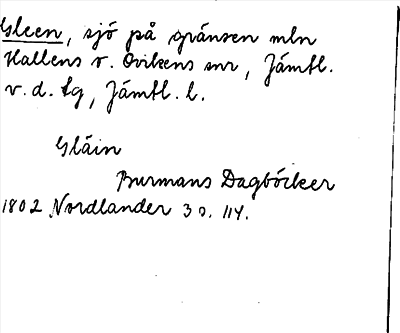 Gleen, sjö på gränsen mln
Hallens o. Ovikens snr, Jämtl.
v. d. tg, Jämtl. l.
Gläin
Burmans Dagböcker
1802 Nordlander 3 s. 114.